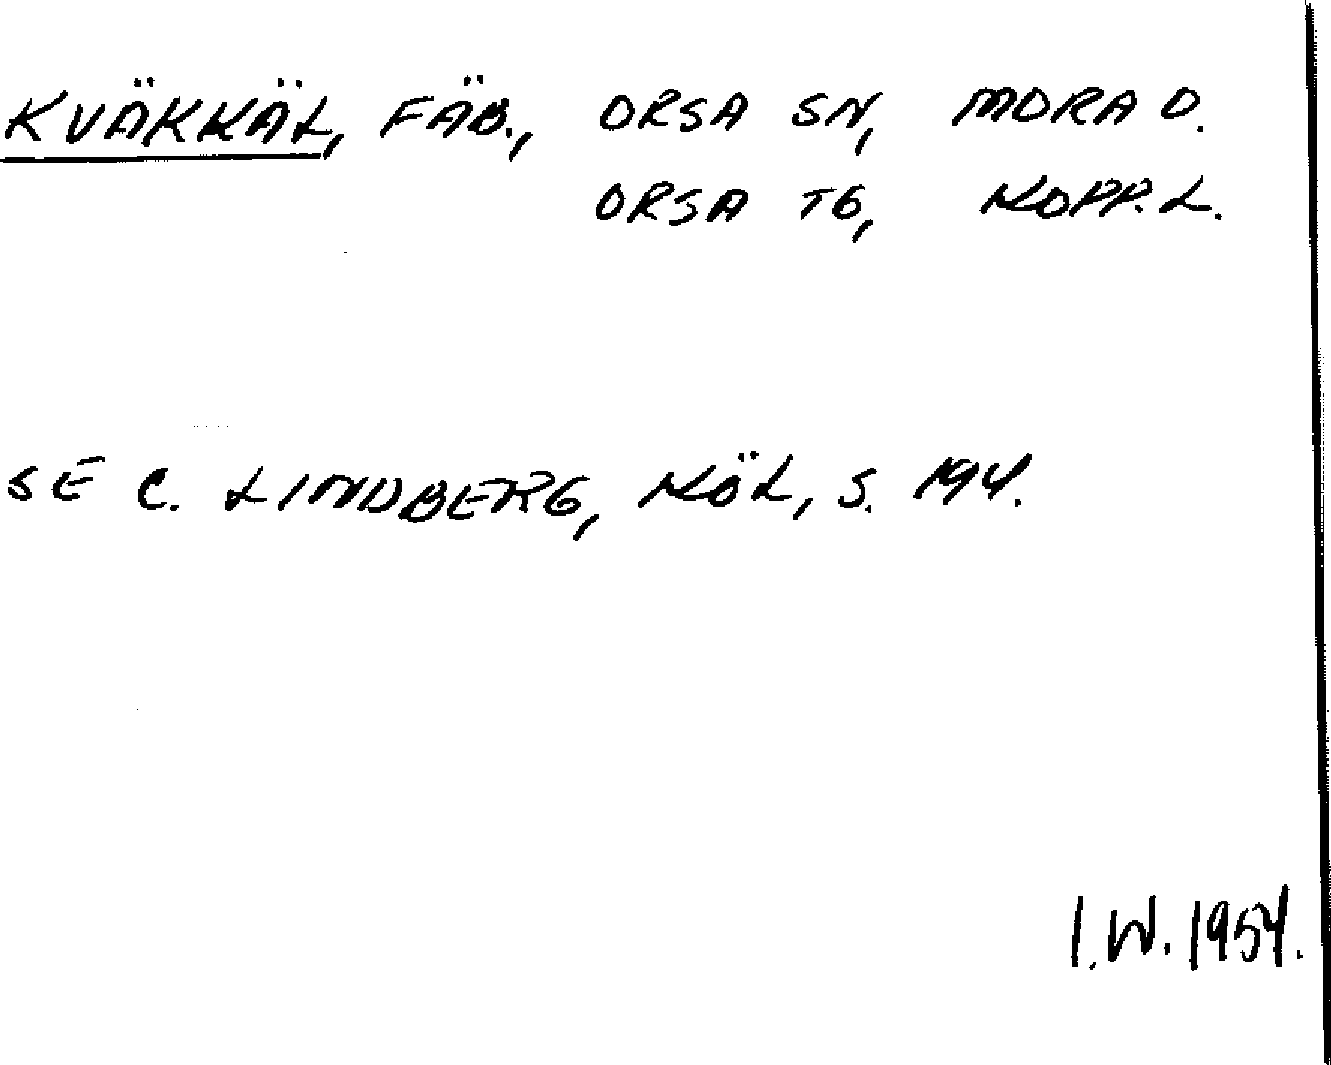 KVÄKKÄL, FÄB., ORSA SN, MORA D.
ORSA TG, KOPP. L.
SE C. LINDBERG, KÖL, S. 194.
I.W. 1954.